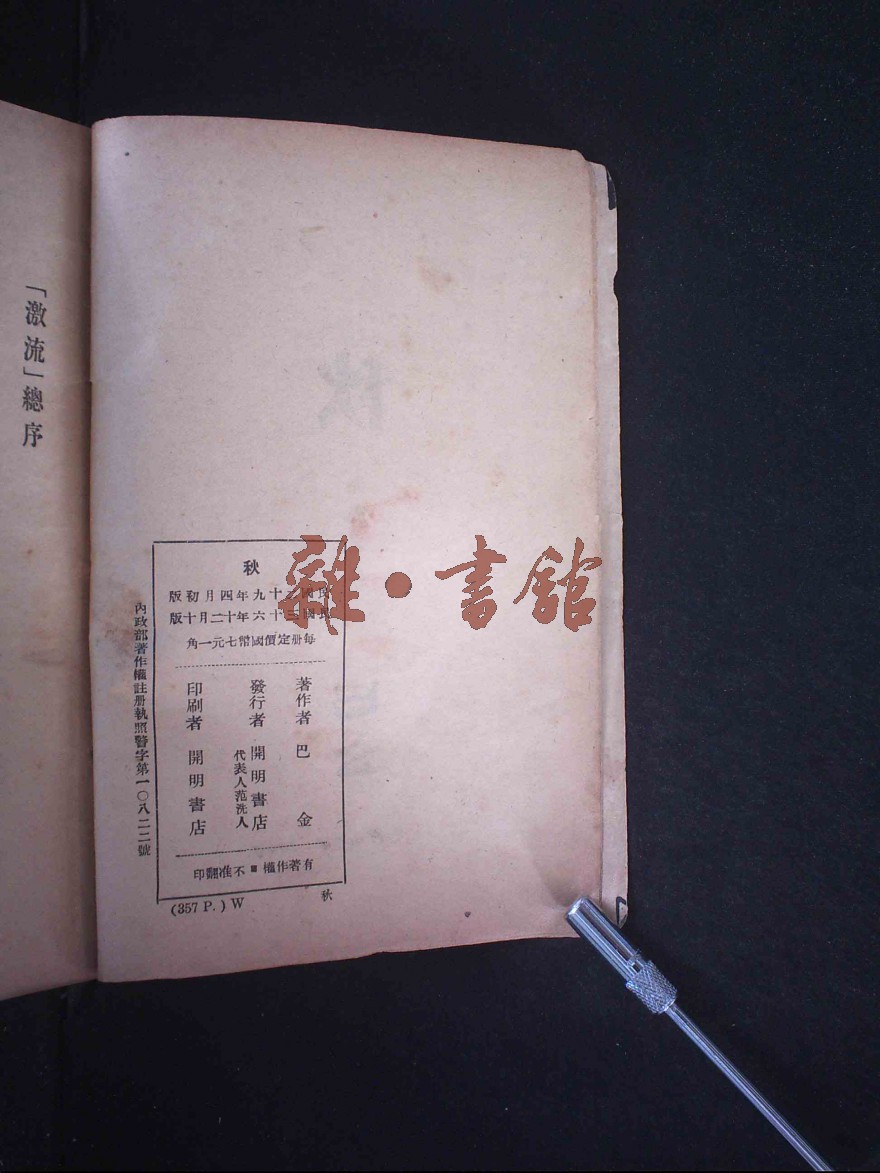 秋
民國二十九年四月初版
民國三十六年十二月十版
每册定價國幣七元一角
著作者 巴 金
發行者 開明書店
代表人范洗人
印刷者 開明書店
有著作權■不准翻印
內政部著作權註册執照警字第一〇八二二號
秋
(357 P.) W
「激流」總序
雜·書館